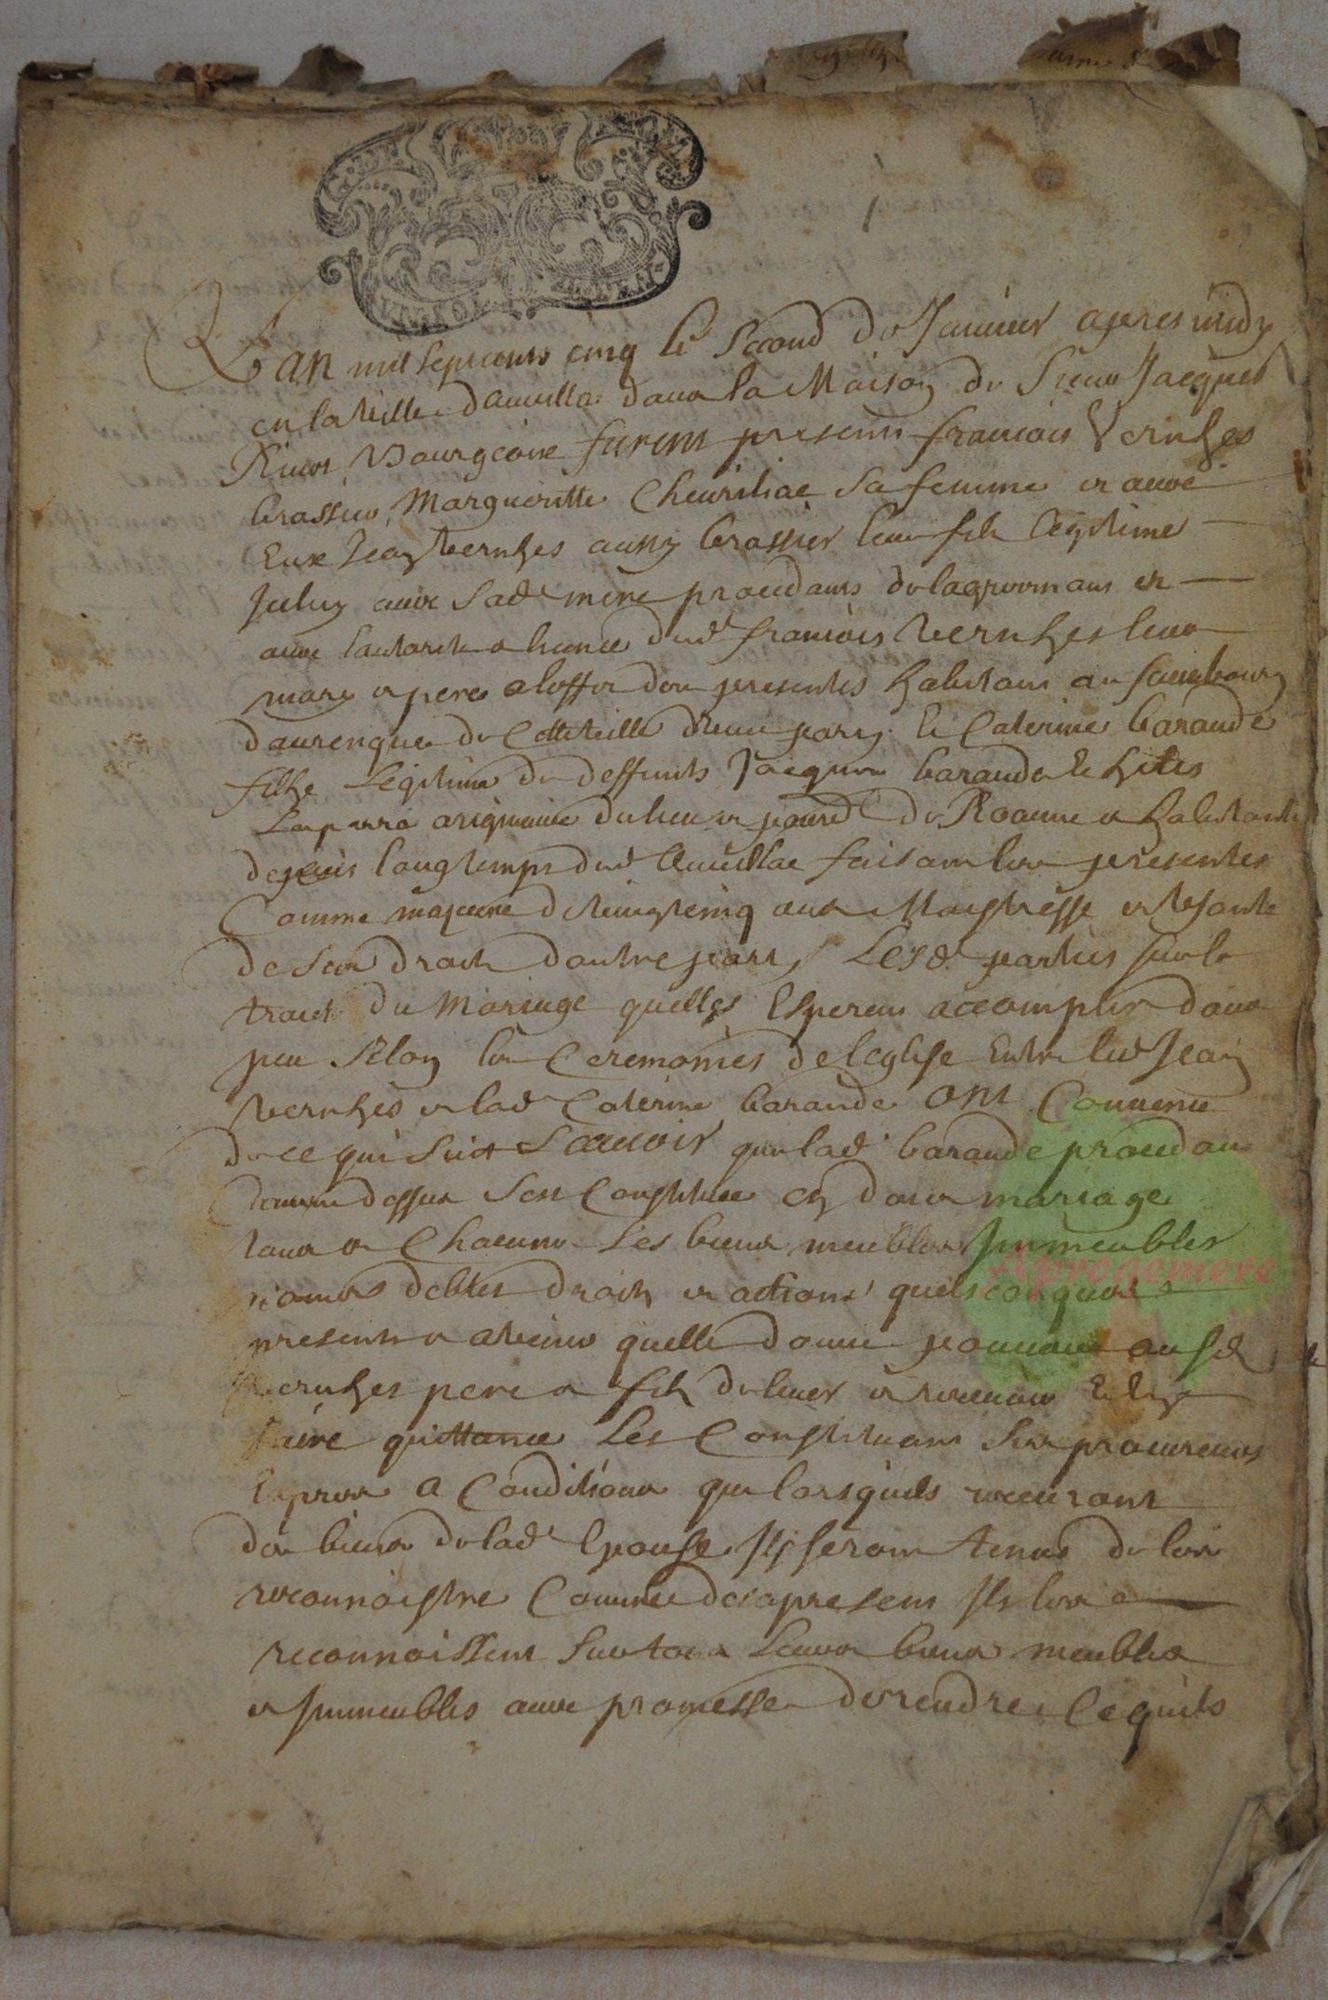 1
Lan mil sept cens cinq le Second de Januier apres midy
en la Ville daurillac dans la Maison de Sieur Jacques
Bourgeois furent presents francois Vernhes
brassier, Margueritte Cheuriliac sa femme et avec
Eux Jean Vernhes aussy brassier leur fils legitime
Icelluy avec sad mere procedans de lagrement et
avec lautorité et licence dud francois Vernhes leur
mary et pere a leffet des presentes habitans au fauxbourg
daurenques de Cette Ville dune part. Et Caterine baraude
filhe Legitime de deffunts Jacques baraude Et
Laparra originaire du lieu et parr.e de Roanne et habitante
depuis longtemps dud Aurillac faisant les presentes
Comme majeure de vingt cinq ans Maistresse et Usante
de Ses droits dautre part, Lesd. parties sur le
traité du Mariage quelles Esperent accomplir dans
peu Selon les Ceremonies de leglise Entre led Jean
Vernhes et lad Caterine baraude ont Convenu
de ce qui Suit Scauoir que lad baraude procedant
Comme dessus Sest Constituée En dot et mariage
tous et Chacuns Ses biens meubles Immeubles
noms debtes droits et actions quelconques
presents et avenir quelle donne pouvoir ausd
Vernhes pere et fils de lever et recevoir Et en
faire quittance Les Constituant Ses procureurs
Expres a Conditions que lorsquils recevront
des biens de lad Epouse Ils seront tenus de les
reconnoistre Comme des apresent Ils les
reconnoissent Sur tous Leurs biens meubles
et Immeubles avec promesse de rendre Ce quils
Aprogemere